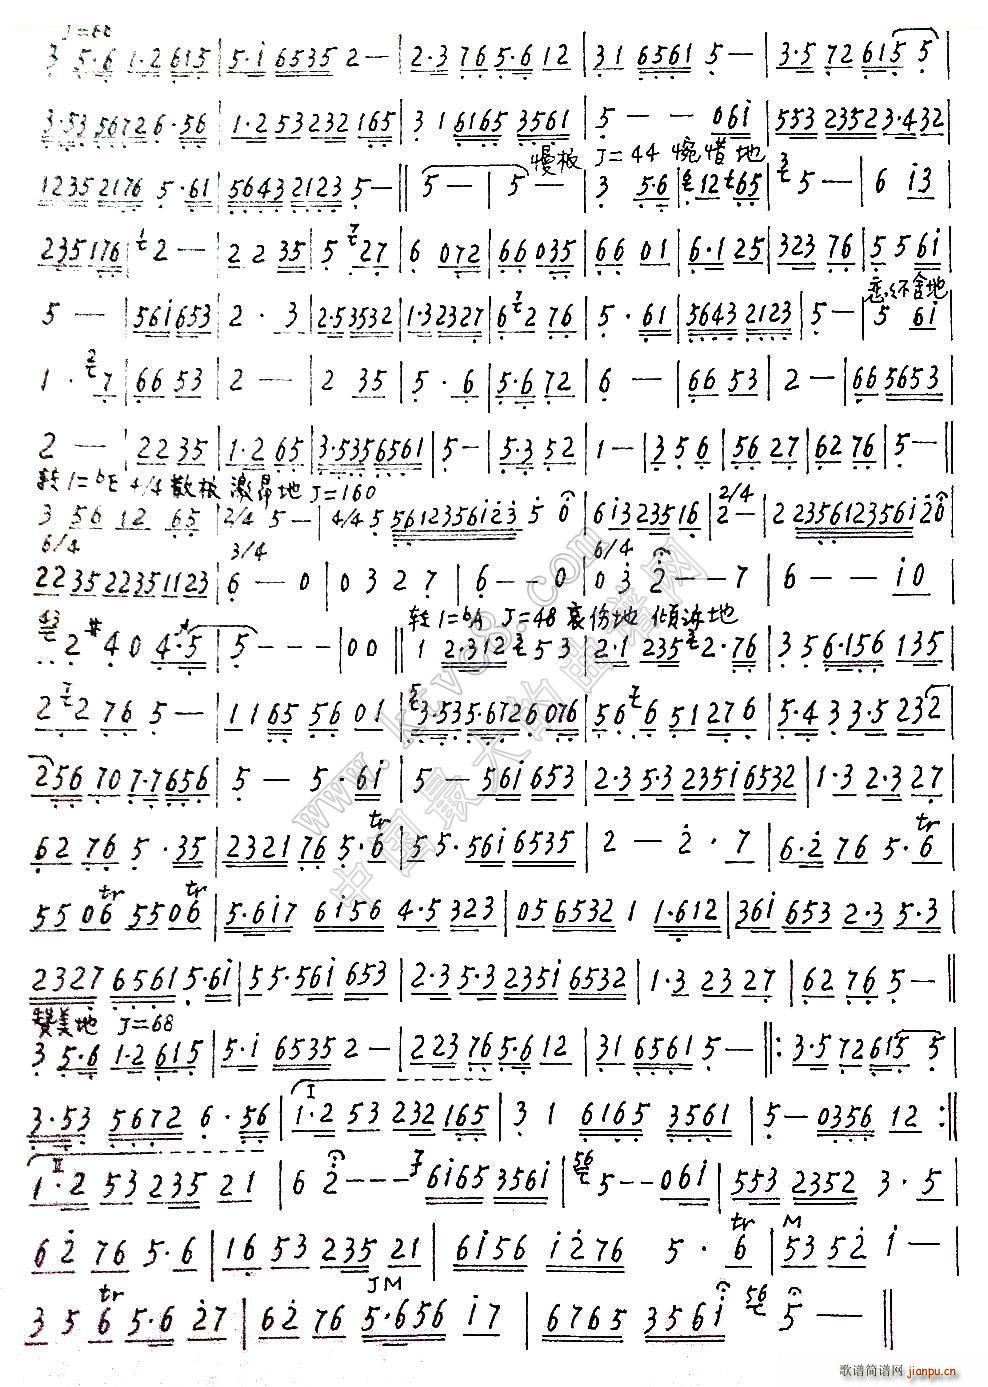 J=66
3 5·6 1·2 615 | 5·i 6535 2 — | 2·3 76 5·6 12 | 31 6561 5 — | 3·5 72 615 5 |
3·53 5672 6·56 | 1·2 53 232 165 | 3 1 6165 3561 | 5 — — 06i | 553 2352 3·432 |
慢板 J=44 惋惜地
1235 2176 5·61 | 5643 2123 5 — ‖ 5 — | 5 — | 3 5·6 | 12 65 | 5 — | 6 i3 |
235176 | 2 — | 2 2 35 | 5 27 | 6 072 | 66 035 | 66 01 | 6·1 25 | 323 76 | 5 5 6i |
恋恋不舍地
5 — | 56i653 | 2 · 3 | 2·53532 | 1·32327 | 6 2 76 | 5 · 61 | 5643 2123 | 5 — | 5 6i |
1 · 7 | 66 53 | 2 — | 2 35 | 5 · 6 | 5·6 72 | 6 — | 66 53 | 2 — | 66 5653 |
2 — | 22 35 | 1·2 65 | 3·5356561 | 5 — | 5·3 52 | 1 — | 3 5 6 | 56 27 | 62 76 | 5 — ‖
转1=bE 4/4 散板 激昂地 J=160
3 56 12 65 | 2/4 5 — | 4/4 5 56123561i23 5 0 | 6i323516 | 2/4 2 — | 2 235612356i20 |
6/4 3/4 6/4
2235223511 23 | 6 — 0 | 0 3 2 7 | 6 — — 0 | 0 3 2 — — 7 | 6 — — i0 |
转1=bA J=48 哀伤地 倾诉地
2 #4 0 4·5 | 5 — — | 00 ‖ 1 2·312 53 | 2·1 235 2·76 | 3 5 6·156 135 |
2 2 76 5 — | 1 1 65 56 01 | 3·535·6726 076 | 56 6 51276 | 5·4 3 3·5 232 |
256 70 7·7656 | 5 — 5·6i | 5 — 56i 653 | 2·3 5·3 235i 6532 | 1·3 2·3 27 |
62 76 5·35 | 2321 76 5·6 tr | 5 5·56i 6535 | 2 — 2·7 | 6·2 76 5·6 tr |
55 06 tr 55 06 tr | 5·6i7 6i56 4·5 323 | 05 6532 1 1·612 | 36i 653 2·3 5·3 |
2327 6561 5·6i | 55·56i 653 | 2·3 5·3 235i 6532 | 1·3 23 27 | 62 76 5 — ‖
赞美地 J=68
3 5·6 1·2 615 | 5·i 6535 2 — | 223 76 5·6 12 | 31 6561 5 — ‖: 3·5 72 615 5 |
3·53 5672 6·56 | I 1·2 53 232 165 | 3 1 6165 3561 | 5 — 0356 12 :‖
II 1·2 53 235 21 | 6 2 — — — 6i65 356i | 56 5 — — 06i | 553 2352 3·5 |
62 76 5·6 | 16 53 235 21 | 6i56 i276 5·6 tr | M 53 52 i — |
3 5 6 tr 5·6 27 | 62 76 JM 5·656 i7 | 6765 356i 56 5 — — ‖
www.ktv8.com
中国最大的曲谱网
歌谱简谱网 jianpu.cn